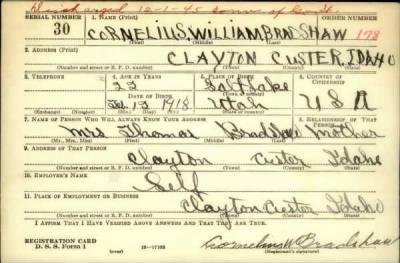 Discharged 12-1-45
SERIAL NUMBER 1. NAME (Print)
30 CORNELIUS, WILLIAM, BRADSHAW 178
(First) (Middle) (Last)
2. ADDRESS (Print)
CLAYTON CUSTER IDAHO
3. TELEPHONE 4. AGE IN YEARS 5. PLACE OF BIRTH 6. COUNTRY OF CITIZENSHIP
22 Salt Lake
DATE OF BIRTH
Feb 13 1918 Utah U S A
(Exchange) (Number) (Mo.) (Day) (Yr.) (State or country)
7. NAME OF PERSON WHO WILL ALWAYS KNOW YOUR ADDRESS 8. RELATIONSHIP OF THAT PERSON
Mrs Thomas Bradshaw Mother
(Mr., Mrs., Miss) (First) (Middle) (Last)
9. ADDRESS OF THAT PERSON
Clayton Custer Idaho
(Number and street or R. F. D. number) (Town) (County) (State)
10. EMPLOYER'S NAME
Self
11. PLACE OF EMPLOYMENT OR BUSINESS
Clayton Custer Idaho
(Number and street or R. F. D. number) (Town) (County) (State)
I AFFIRM THAT I HAVE VERIFIED ABOVE ANSWERS AND THAT THEY ARE TRUE.
REGISTRATION CARD
D. S. S. Form 1 (over) 16—17105 Cornelius W Bradshaw
(Registrant's signature)